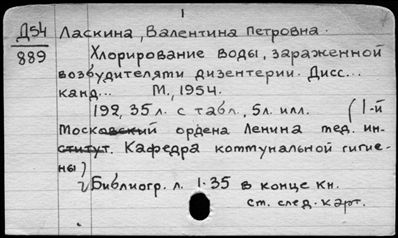 1
Д54 Ласкина, Валентина Петровна.
889 Хлорирование воды, зараженной
возбудителями дизентерии. Дисс...
канд... М., 1954.
192, 35 л. с табл., 5 л. илл. (1-й
Московский ордена Ленина мед. ин-
ститут. Кафедра коммунальной гигие-
ны)
Библиогр. л. 1-35 в конце кн.
ст. след. карт.